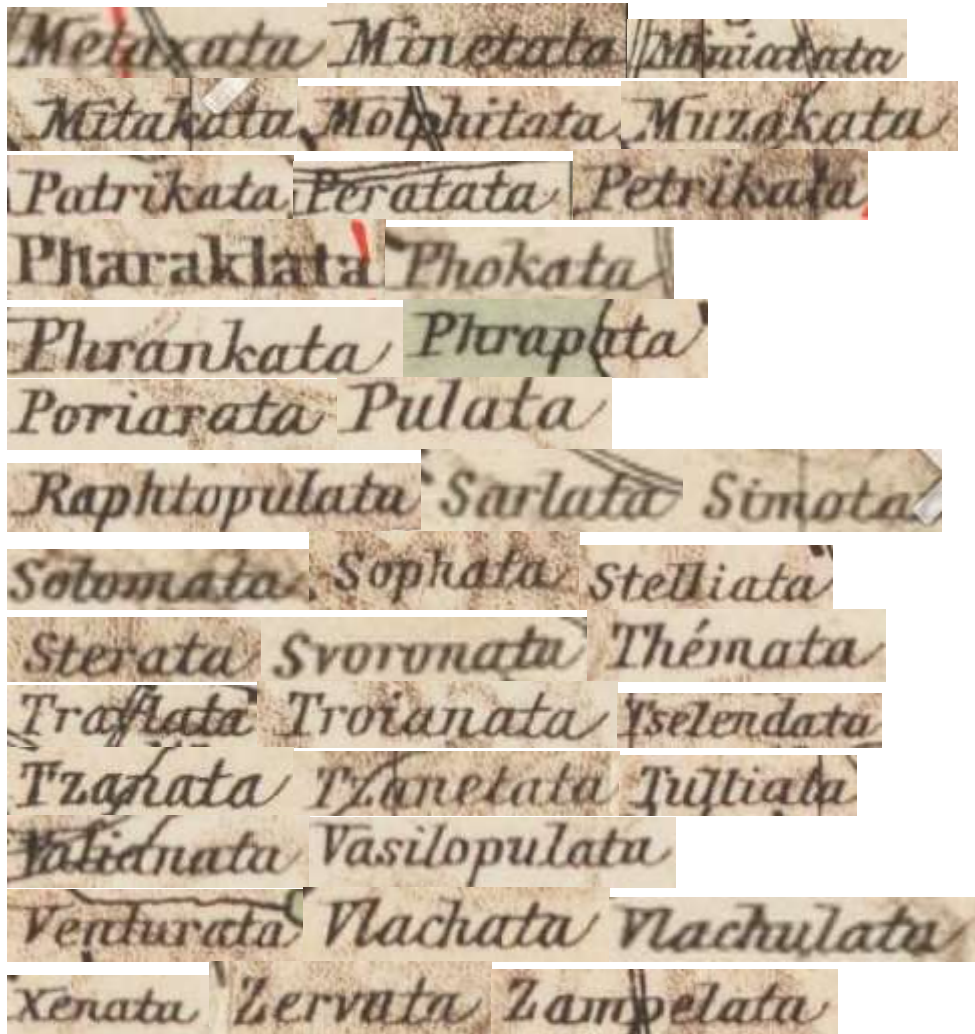 Metaxata Minetata Miniarata
Mitakata Molphitata Muzakata
Patrikata Peratata Petrikata
Pharaklata Phokata
Phrankata Phrapata
Poriarata Pulata
Raphtopulata Sarlata Simota
Solomata Sophata Stelliata
Sterata Svoronata Thémata
Traflata Troianata Tselendata
Tzanata Tzanetata Tulliata
Valianata Vasilopulata
Venturata Vlachata Vlachulata
Xenata Zervata Zampelata